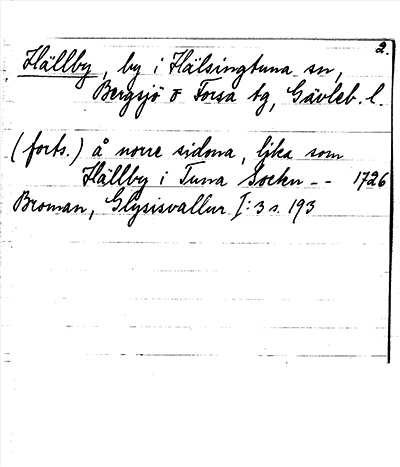 2.
Hällby, by i Hälsingtuna sn,
Bergsjö o Forsa tg, Gävleb. l.
(forts.) å norre sidona, lijka som
Hällby i Tuna Sockn -- 1726
Broman, Glysisvallur I:3 s. 193